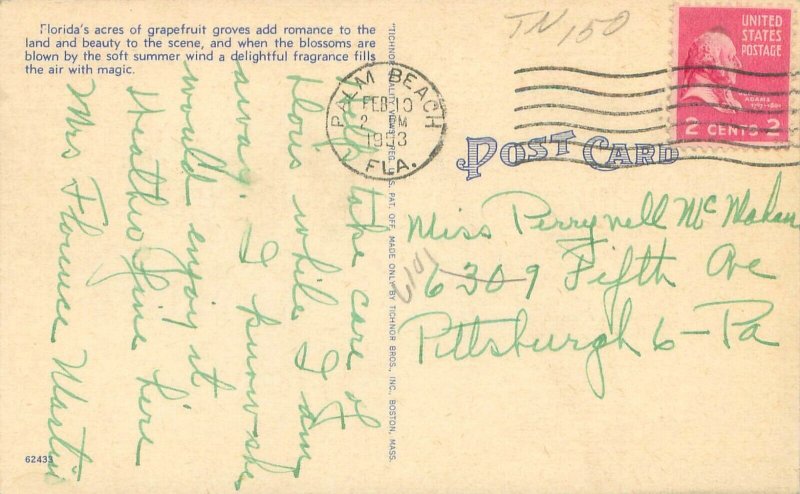 Florida's acres of grapefruit groves add romance to the
land and beauty to the scene, and when the blossoms are
blown by the soft summer wind a delightful fragrance fills
the air with magic.
help take care of
Floris while I am
away. I know she
would enjoy it
Weather fine here
Mrs Florence Martin
62433
"TICHNOR QUALITY VIEWS," REG. U. S. PAT. OFF. MADE ONLY BY TICHNOR BROS., INC., BOSTON, MASS.
TN 150
PALM BEACH
FEB 10
2 PM
FLA.
UNITED
STATES
POSTAGE
ADAMS
2 CENTS 2
POST CARD
Miss Perrynell McMahan
6309 Fifth Ave
Pittsburgh 6-Pa